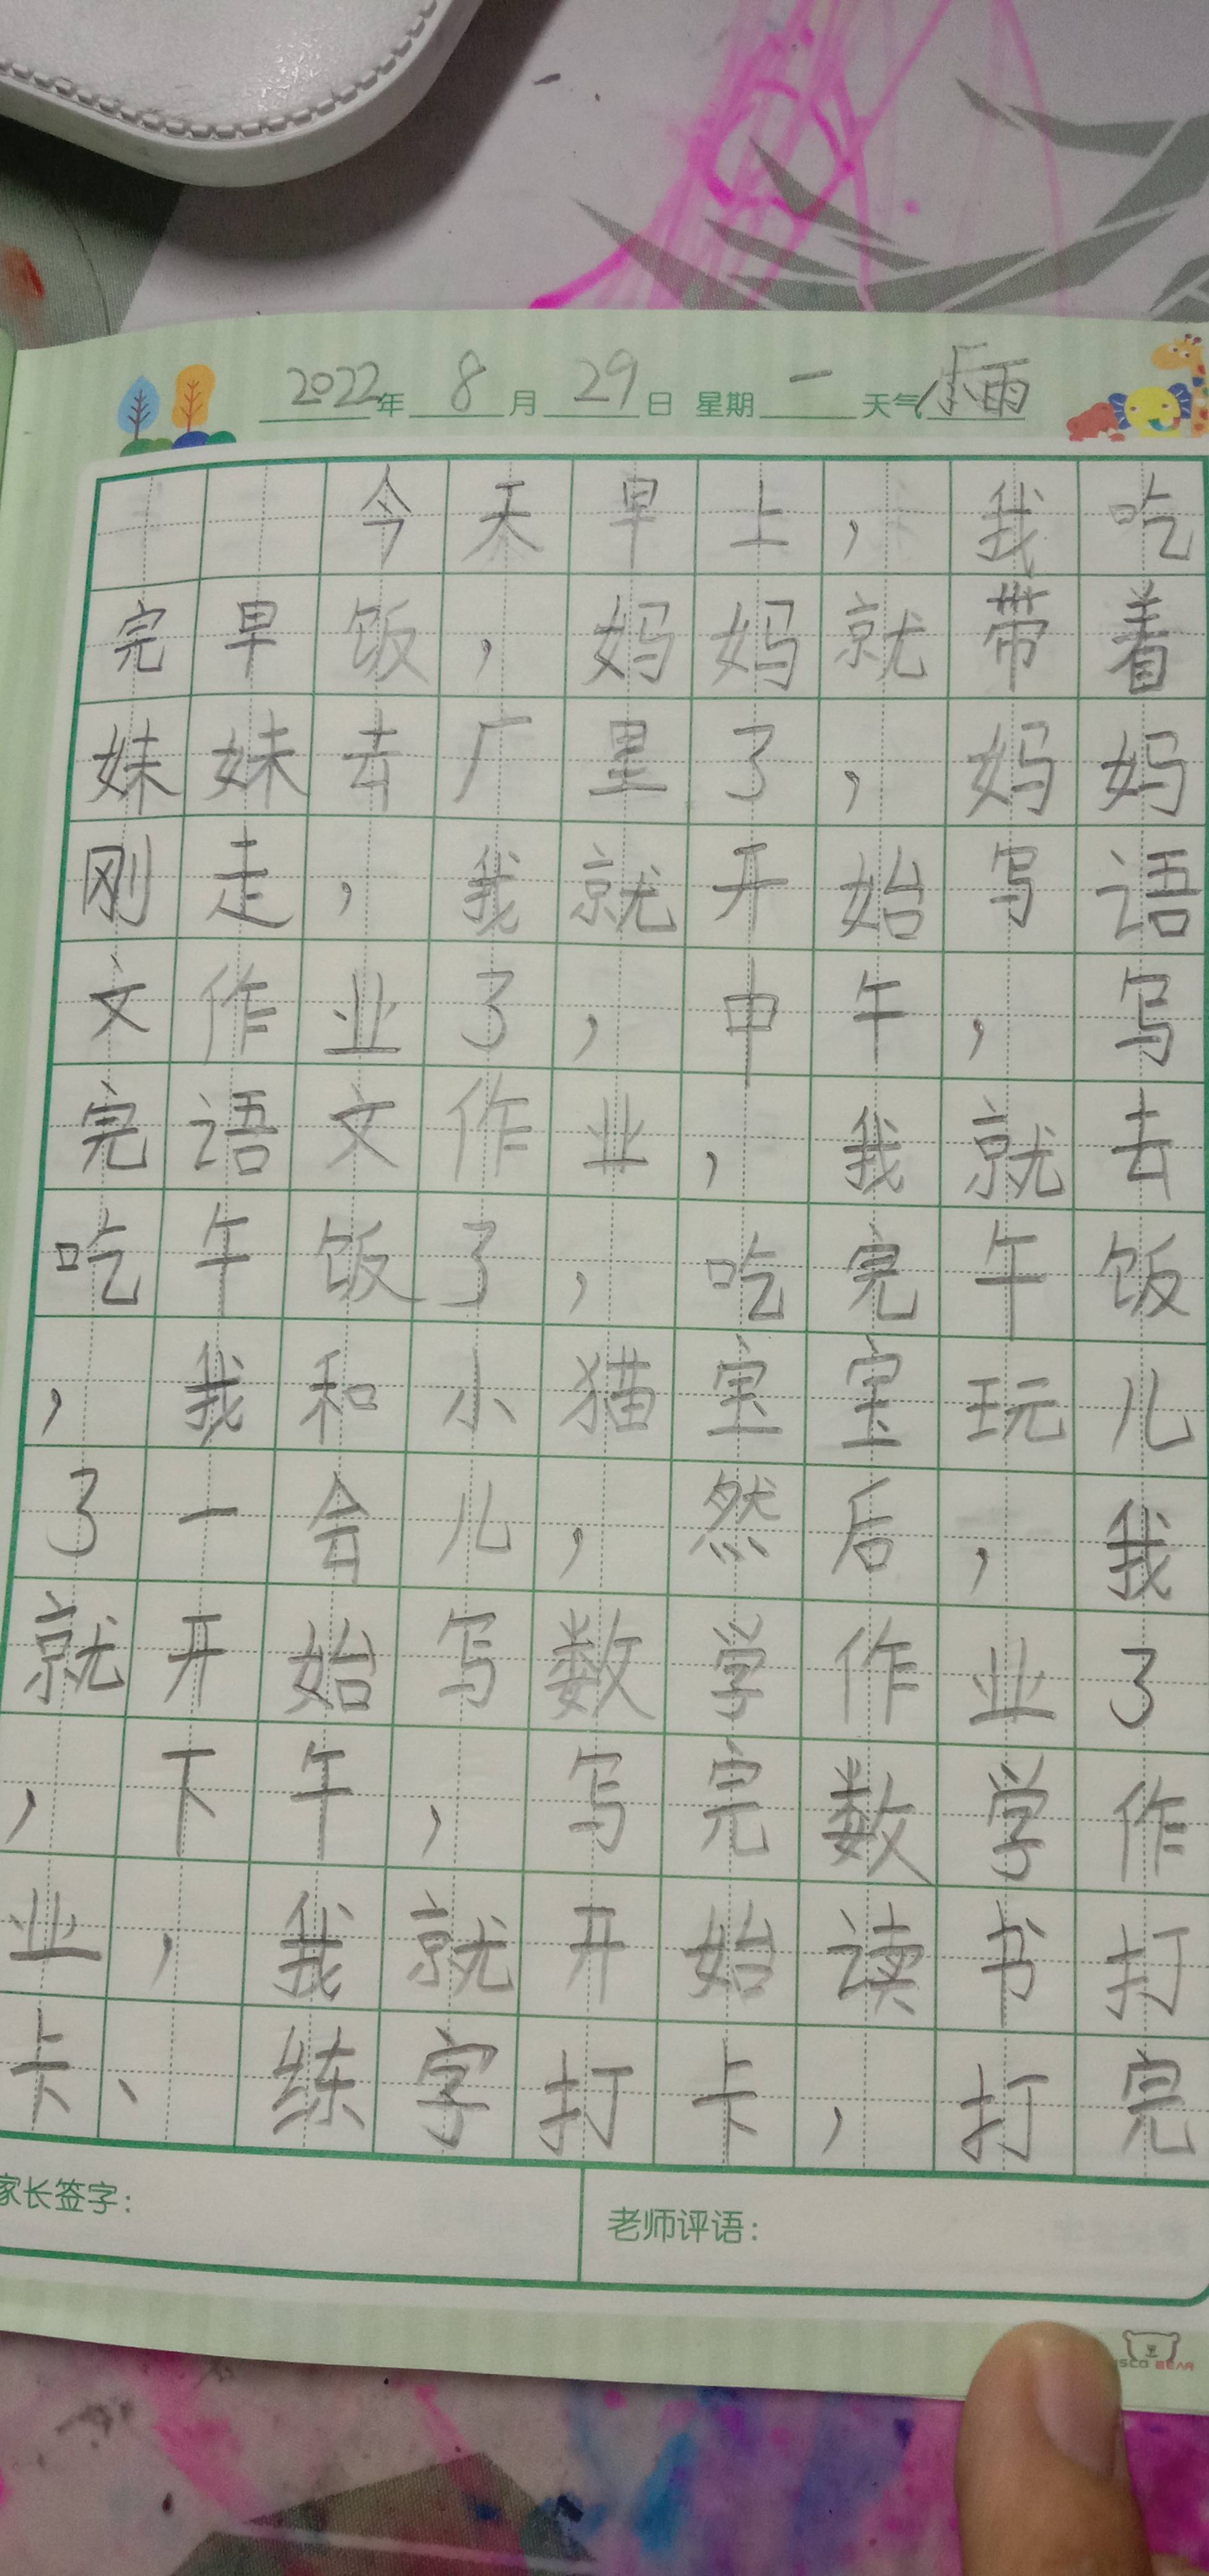 2022年8月29日 星期一 天气雨
今天早上,我吃
完早饭,妈妈就带着
妹妹去厂里了,妈妈
刚走,我就开始写语
文作业了,中午,写
完语文作业,我就去
吃午饭了,吃完午饭
,我和小猫宝宝玩儿
了一会儿,然后,我
就开始写数学作业了
,下午,写完数学作
业,我就开始读书打
卡、练字打卡,打完
家长签字:
老师评语:
BEAR